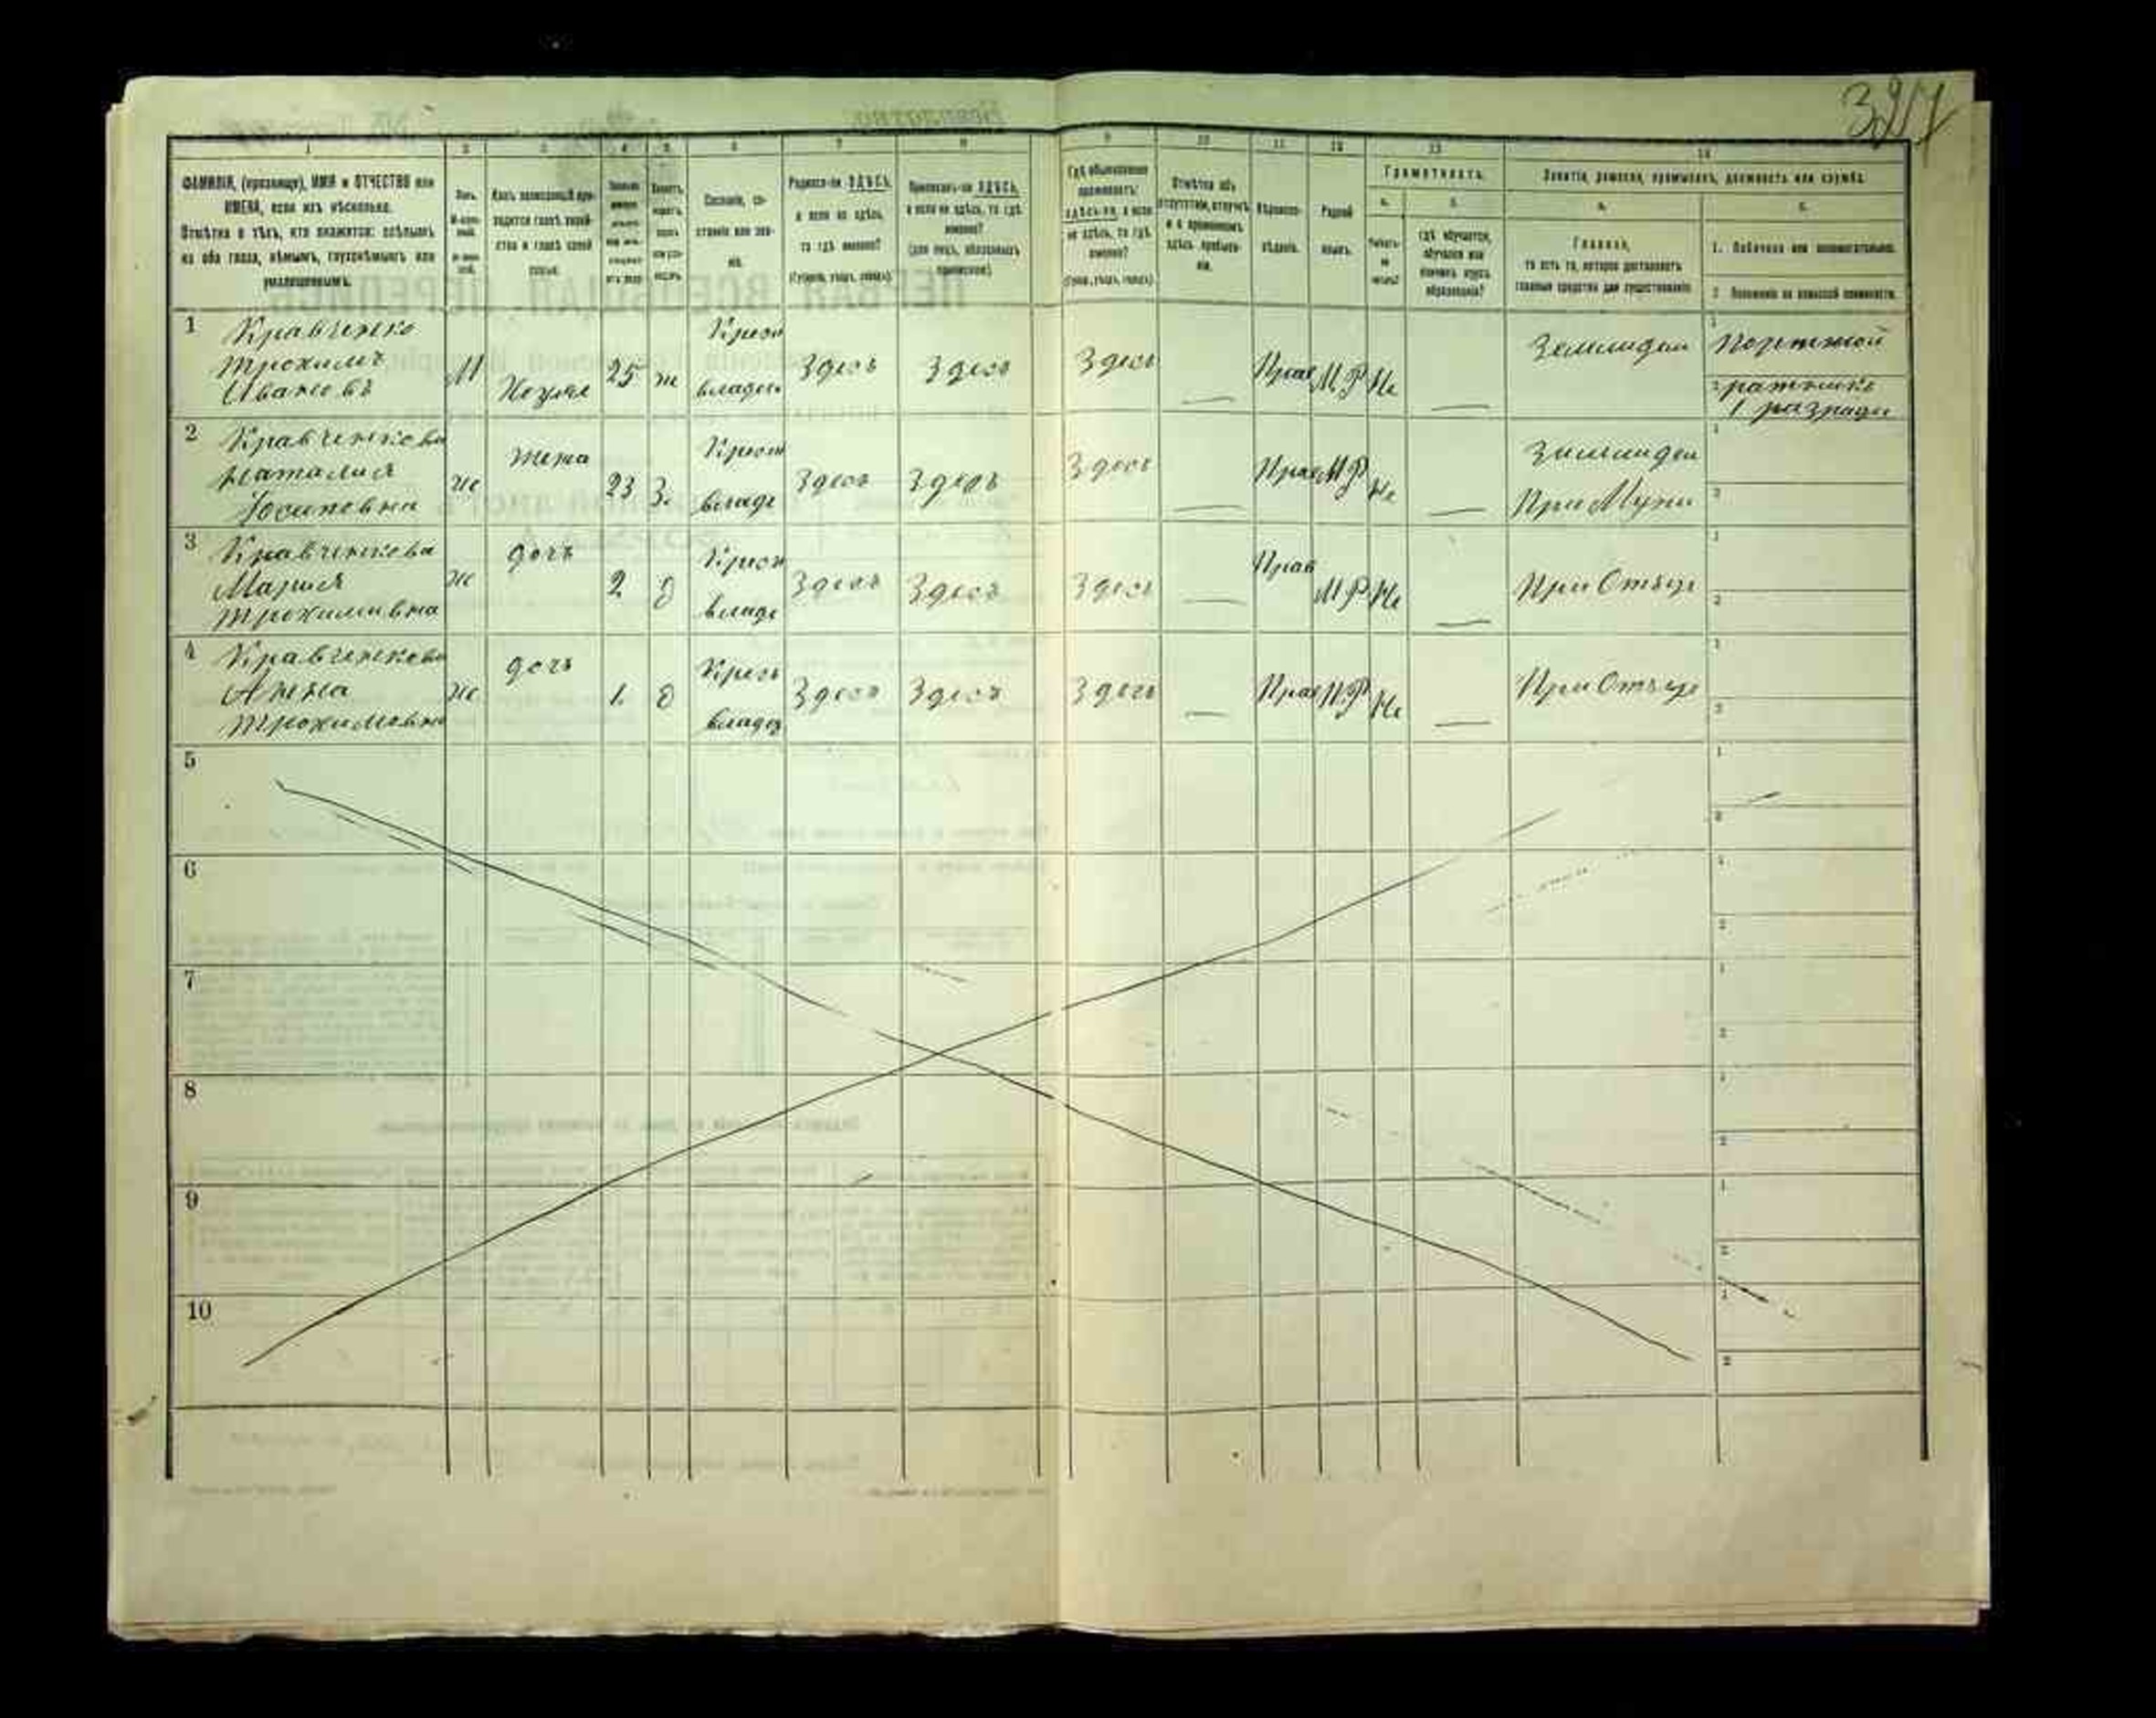 327
1 2 3 4 5 6 7 8 9 10 11 12 13 14
ФАМИЛІЯ, (прозвище), ИМЯ и ОТЧЕСТВО или
ИМЕНА, если ихъ нѣсколько.
Отмѣтка о тѣхъ, кто окажется: слѣпымъ
на оба глаза, нѣмымъ, глухонѣмымъ или
умалишеннымъ.
Полъ.
Сословіе, со-
стояніе или зва-
ніе.
Родился-ли ЗДѢСЬ,
а если не здѣсь,
то гдѣ именно?
(Губернія, уѣздъ, городъ)
Приписанъ-ли ЗДѢСЬ,
а если не здѣсь, то гдѣ
именно?
(для лицъ, обязанныхъ
припиской)
Гдѣ обыкновенно
проживаетъ:
здѣсь-ли, а если
не здѣсь, то гдѣ
именно?
(Губ., уѣздъ, городъ)
Отмѣтка объ
отсутствіи, отлучкѣ
и о временномъ
здѣсь пребыва-
ніи.
Вѣроиспо-
вѣданіе.
Родной
языкъ.
Грамотность.
а. б.
Умѣетъ-
ли
читать?
гдѣ обучается,
обучался или
кончилъ курсъ
образованія?
Занятіе, ремесло, промыселъ, должность или служба.
а. б.
Главное,
то есть то, которое доставляетъ
главныя средства для существованія.
1. Побочное или вспомогательное.
2. Положеніе по воинской повинности.
1 Кравченко
Трохимъ
Ивановъ
М Хозяие 25 ж Крест владел Здесь Здесь Здесь — Прав М.Р Не — Землидел
1 Портной
2 ратникъ
1 разряда
2 Кравченкова
Наталия
Иосиповна
Ж жена 23 З. Крест владе Здесь Здесь Здесь — Прав М.Р Не — Землидел
При Мужи
3 Кравченкова
Мария
Трохимивна
Ж дочь 2 д Крест владе Здесь Здесь Здесь — Прав М.Р Не — При Отъце
4 Кравченкова
Анна
Трохимовна
Ж дочь 1. д Крест владе Здесь Здесь Здесь — Прав М.Р Не — При Отъце
5
6
7
8
9
10